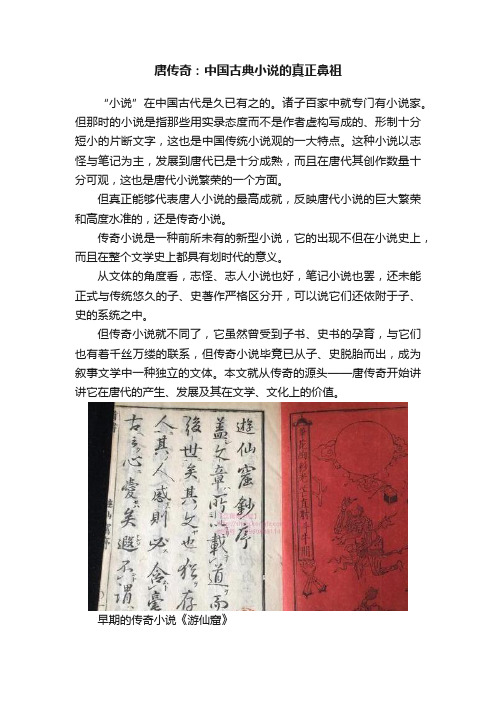 唐传奇：中国古典小说的真正鼻祖
“小说”在中国古代是久已有之的。诸子百家中就专门有小说家。
但那时的小说是指那些用实录态度而不是作者虚构写成的、形制十分
短小的片断文字，这也是中国传统小说观的一大特点。这种小说以志
怪与笔记为主，发展到唐代已是十分成熟，而且在唐代其创作数量十
分可观，这也是唐代小说繁荣的一个方面。
但真正能够代表唐人小说的最高成就，反映唐代小说的巨大繁荣
和高度水准的，还是传奇小说。
传奇小说是一种前所未有的新型小说，它的出现不但在小说史上，
而且在整个文学史上都具有划时代的意义。
从文体的角度看，志怪、志人小说也好，笔记小说也罢，还未能
正式与传统悠久的子、史著作严格区分开，可以说它们还依附于子、
史的系统之中。
但传奇小说就不同了，它虽然曾受到子书、史书的孕育，与它们
也有着千丝万缕的联系，但传奇小说毕竟已从子、史脱胎而出，成为
叙事文学中一种独立的文体。本文就从传奇的源头——唐传奇开始讲
讲它在唐代的产生、发展及其在文学、文化上的价值。
遊仙窟鈔序
蓋文章所載道而
後世矣其文也猶存
人其人感則必含毫
古心愛矣遐不謂
早期的传奇小说《游仙窟》